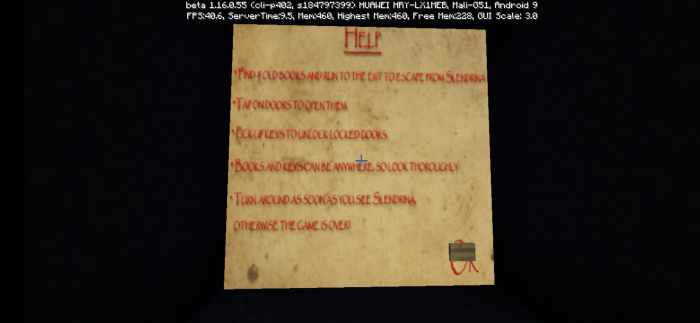 beta 1.16.0.55 (oli-p402, s184797399) HUAWEI HRY-LX1MEB, Mali-G51, Android 9
FPS:40.6, ServerTime:9.5, Mem:460, Highest Mem:460, Free Mem:228, GUI Scale: 3.0
HELP
*FIND 4 OLD BOOKS AND RUN TO THE EXIT TO ESCAPE FROM SLENDRINA
*TAP ON DOORS TO OPEN THEM.
*PICK UP KEYS TO UNLOCK LOCKED DOORS.
*BOOKS AND KEYS CAN BE ANYWHERE, SO LOOK THOROUGHLY.
*TURN AROUND AS SOON AS YOU SEE SLENDRINA
OTHERWISE THE GAME IS OVER!
OK